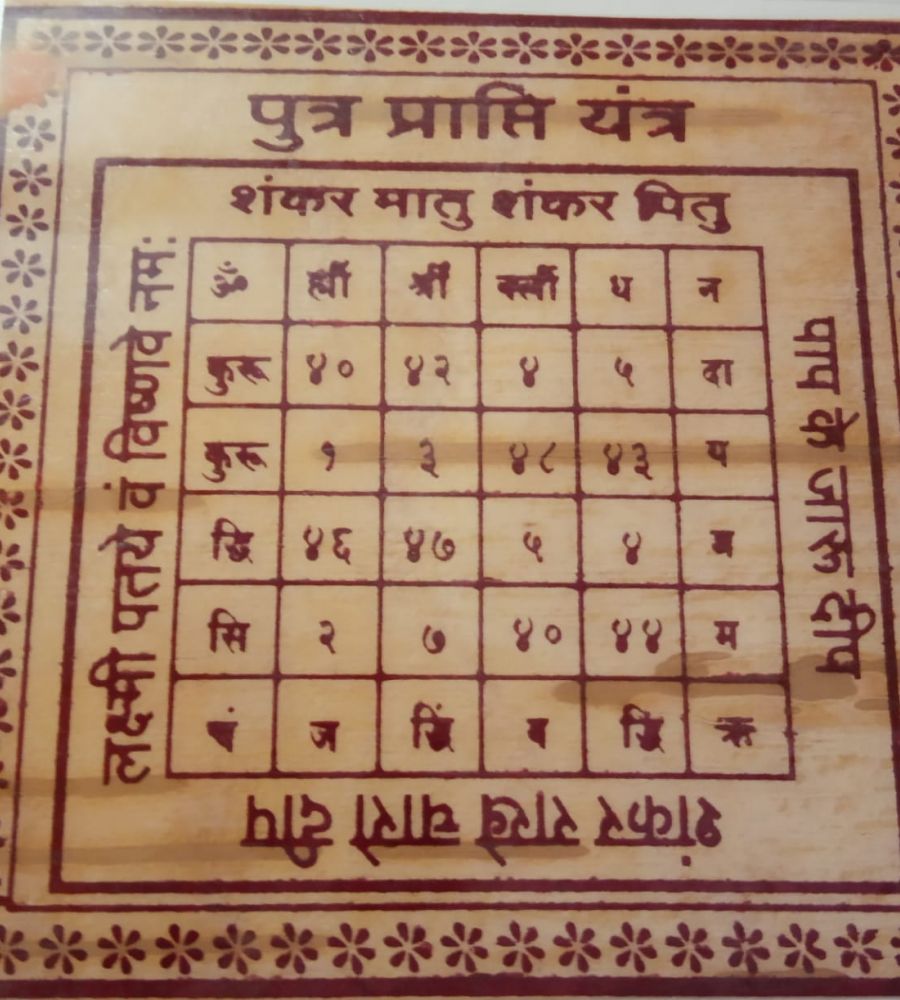 पुत्र प्राप्ति यंत्र
शंकर मातु शंकर पितु
लक्ष्मी पतये वं विष्णवे नमः
ॐ ह्रीं श्रीं क्लीं ध न
कुरू ४० ४२ ४ ५ दा
कुरू १ ३ ४८ ४३ य
द्धि ४६ ४७ ५ ४ म
सि २ ७ ४० ४४ म
ज व
पाप के जारू दीप
शंकर राखे चारो दीप